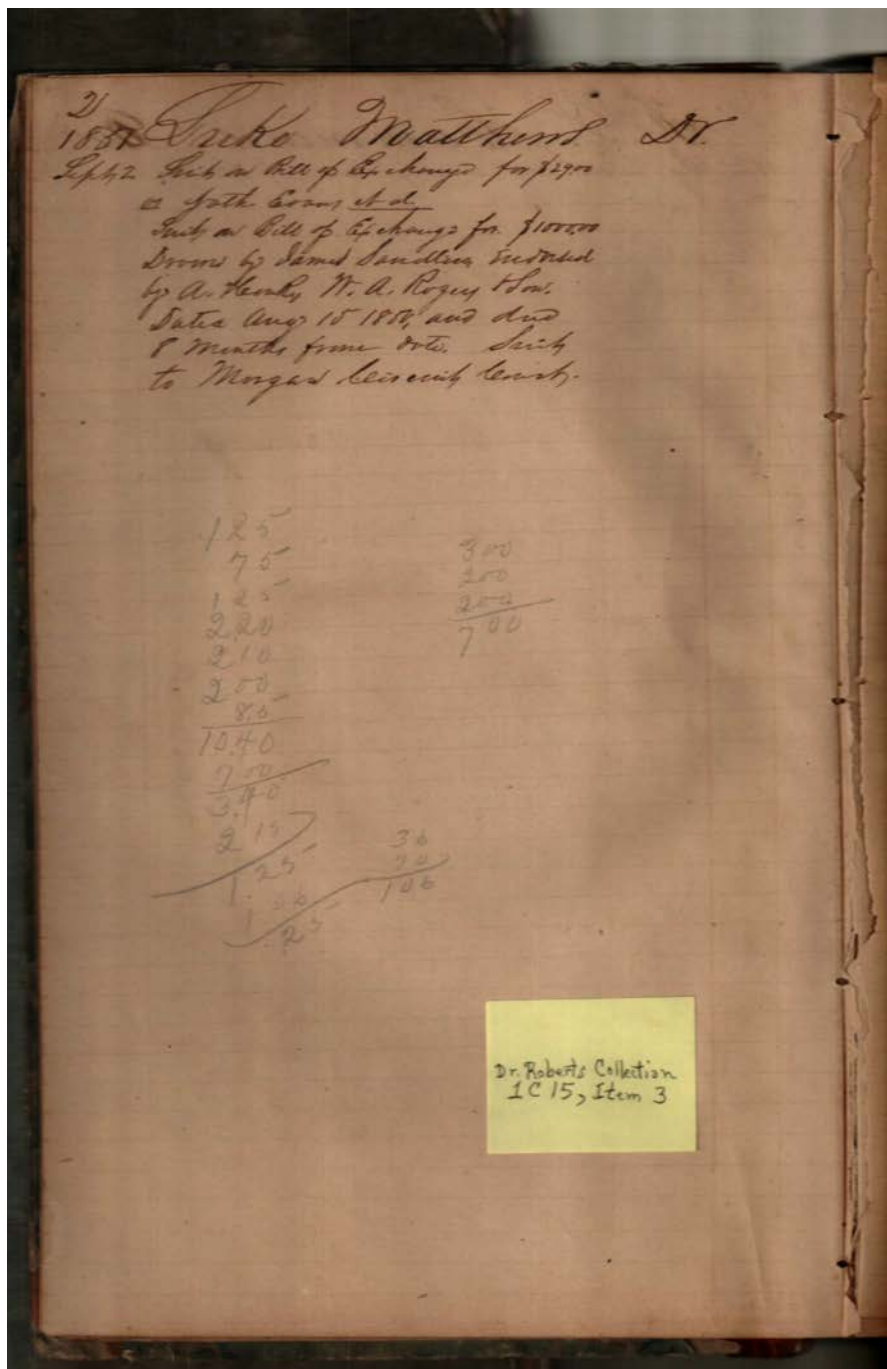 2
1857 Luke Matthews Dr.
Sept 2 Suit on Bill of Exchange for $2900
vs Evans et al
Suit on Bill of Exchange for $1000.00
Drawn by James Sandlin, Endorsed
by A. W. A. Rogers & Son.
Dated Aug 15 1856, and due
8 Months from date. Suit
to Morgan Circuit Court.
125
75
125
220
210
200
85
10.40
700
3.40
2 15
1.25
1 06
25
300
200
200
700
36
70
106
Dr. Roberts Collection
1C15, Item 3